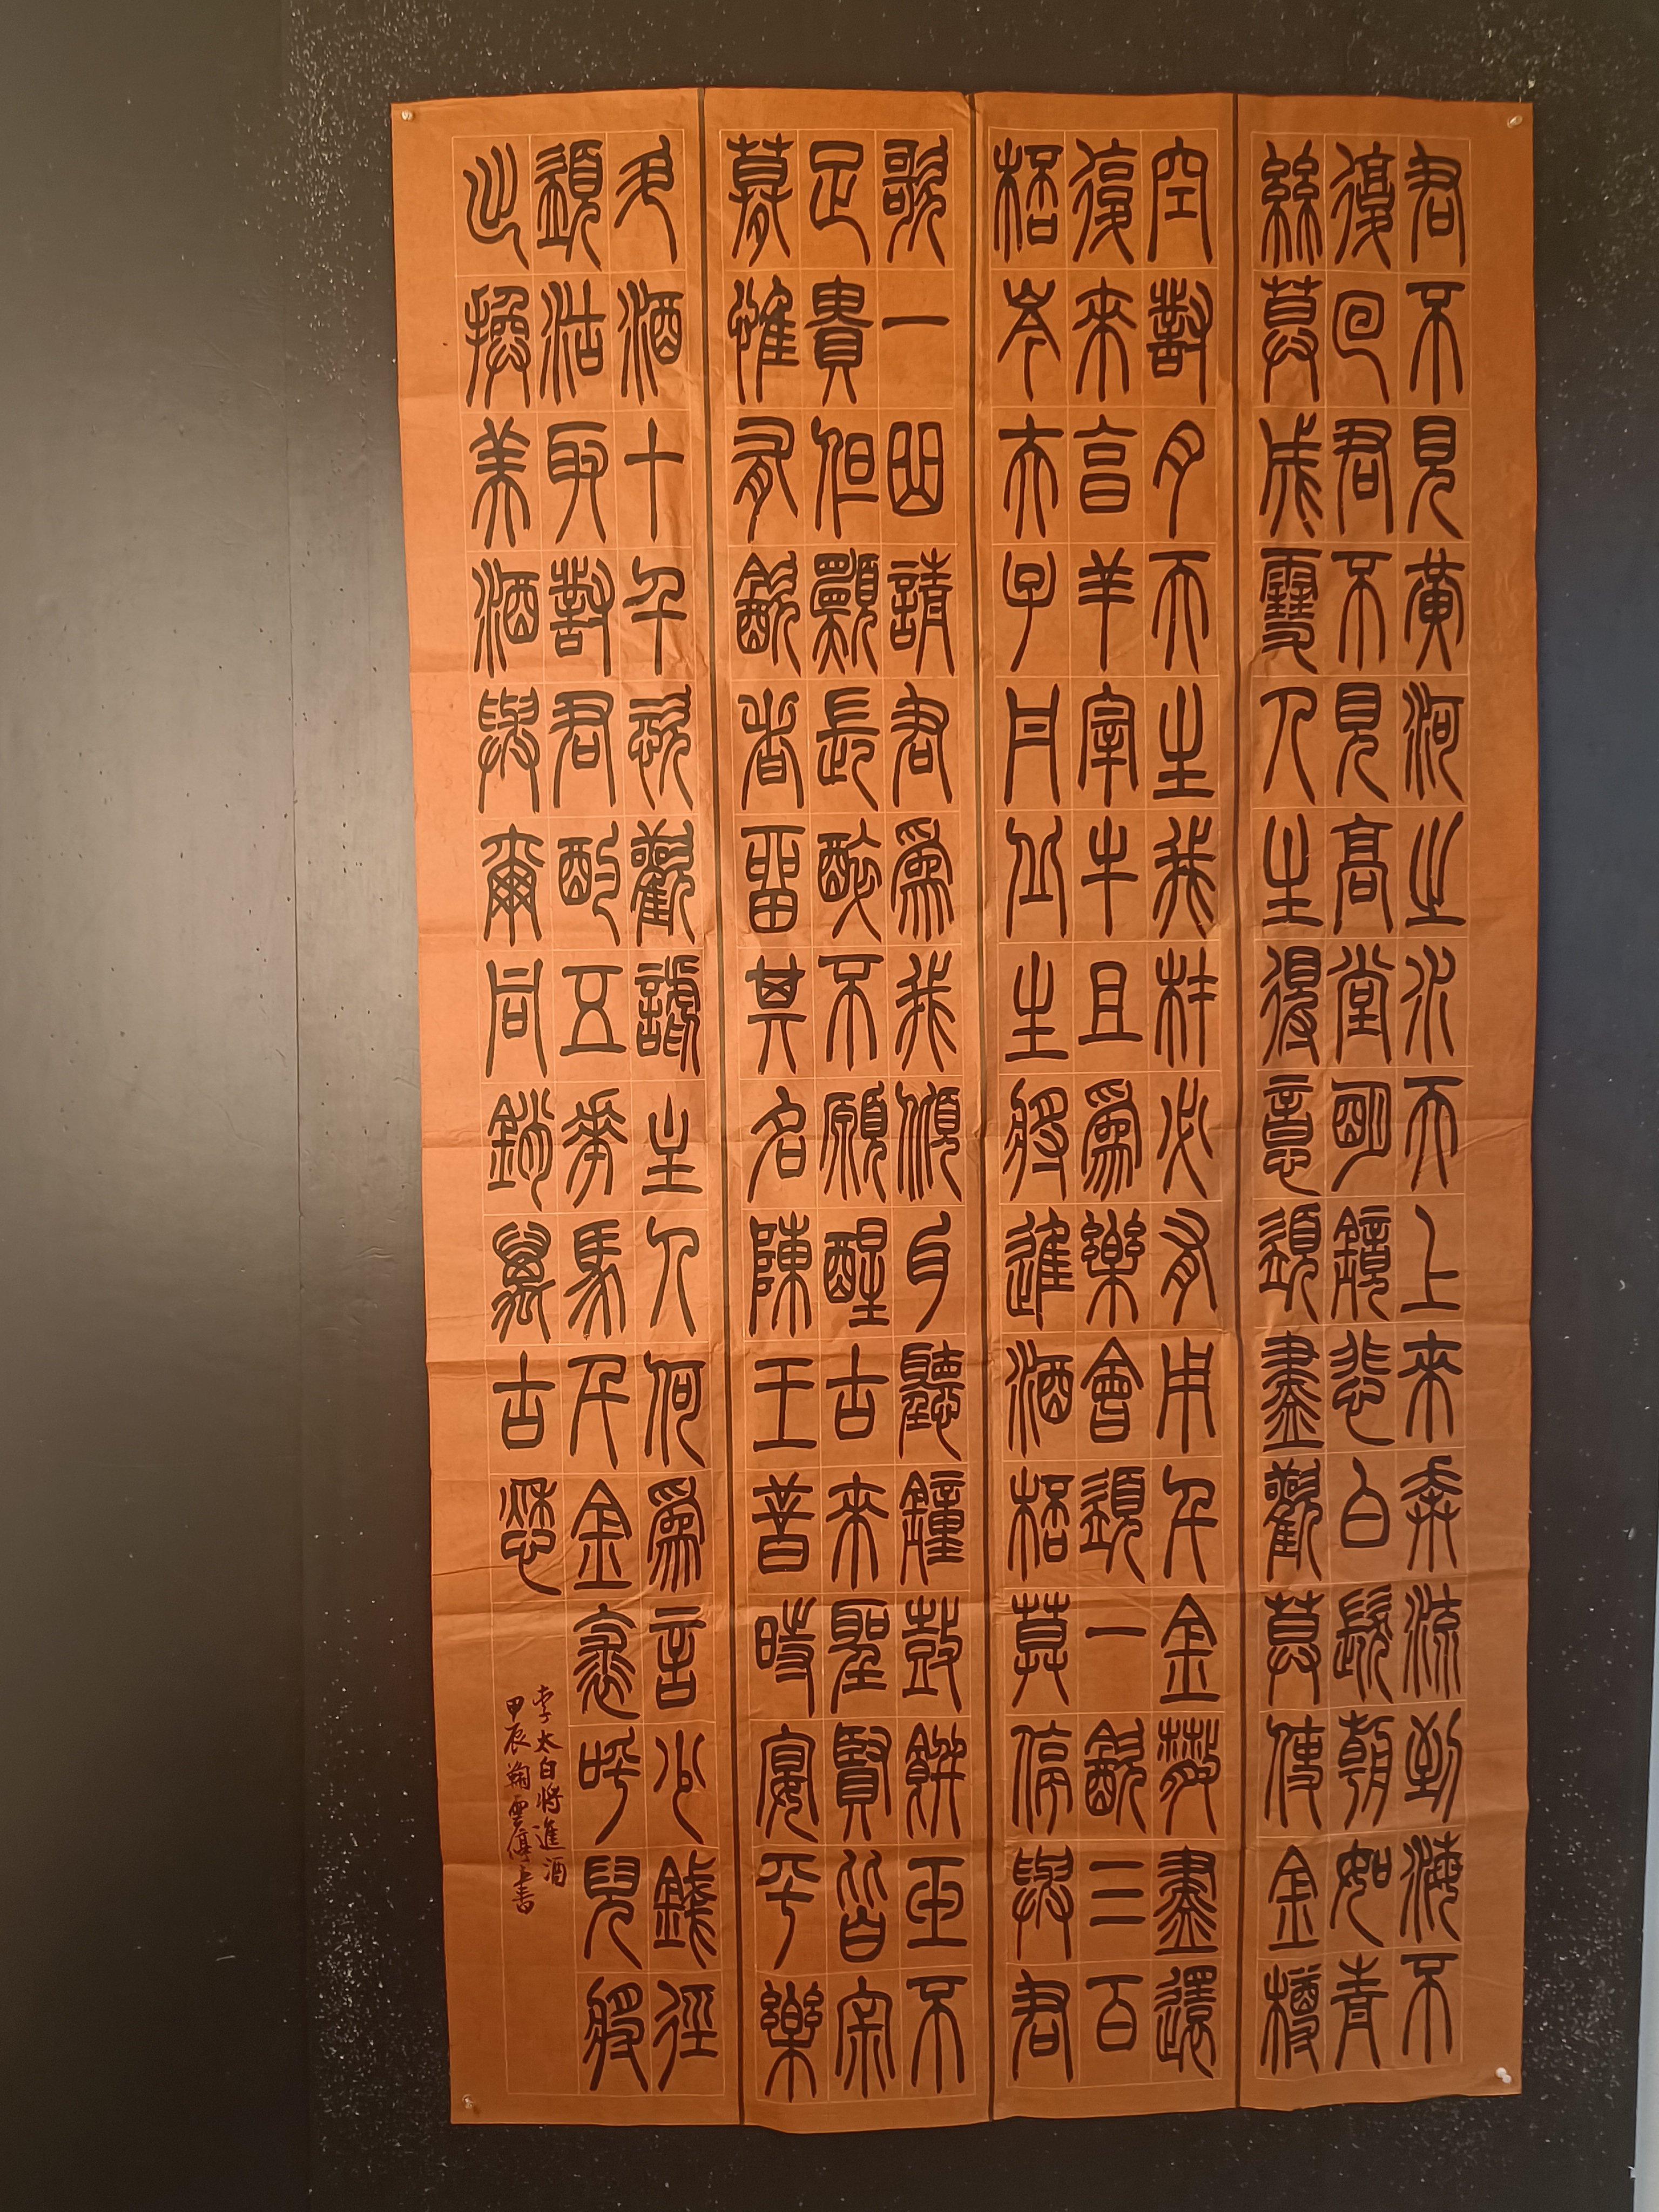 君不見黃河之水天上來奔流到海不
復回君不見高堂明鏡悲白髮朝如青
絲暮成雪人生得意須盡歡莫使金樽
空對月天生我材必有用千金散盡還
復來亯羊宰牛且爲樂會須一飲三百
桮岑夫子丹丘生將進酒桮莫停與君
歌一曲請君爲我傾耳聽鐘鼓饌玉不
足貴但願長醉不願醒古來聖賢皆寂
寞惟有飲者留其名陳王昔時宴平樂
斗酒十千恣歡謔主人何爲言少錢徑
須沽取對君酌五花馬千金裘呼兒將
出換美酒與爾同銷萬古愁
李太白將進酒
甲辰鞠雲書